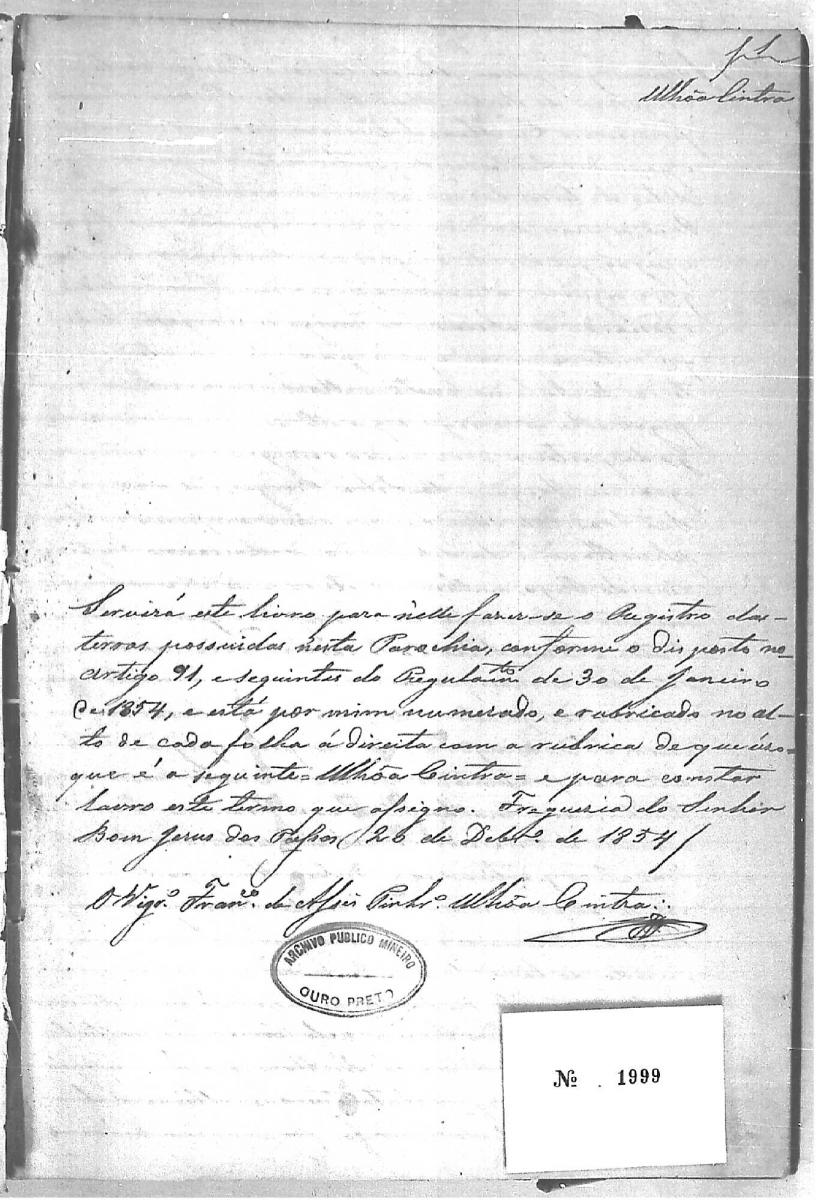 f 1
Ulhôa Cintra
Servirá este livro para nelle fazer-se o Registro das
terras possuidas nesta Parochia, conforme o disposto no
Artigo 91, e seguintes do Regulamto de 30 de Janeiro
de 1854, e está por mim numerado, e rubricado no al-
to de cada folha á direita com a rubrica de que úzo
que é a seguinte = Ulhôa Cintra = e para constar
lavro este termo que assigno. Freguezia do Senhor
Bom Jesus dos Passos 20 de Debro. de 1854
O Vigro. Franco. de Assis Pinhro. Ulhôa Cintra
ARCHIVO PUBLICO MINEIRO
OURO PRETO
No. 1999